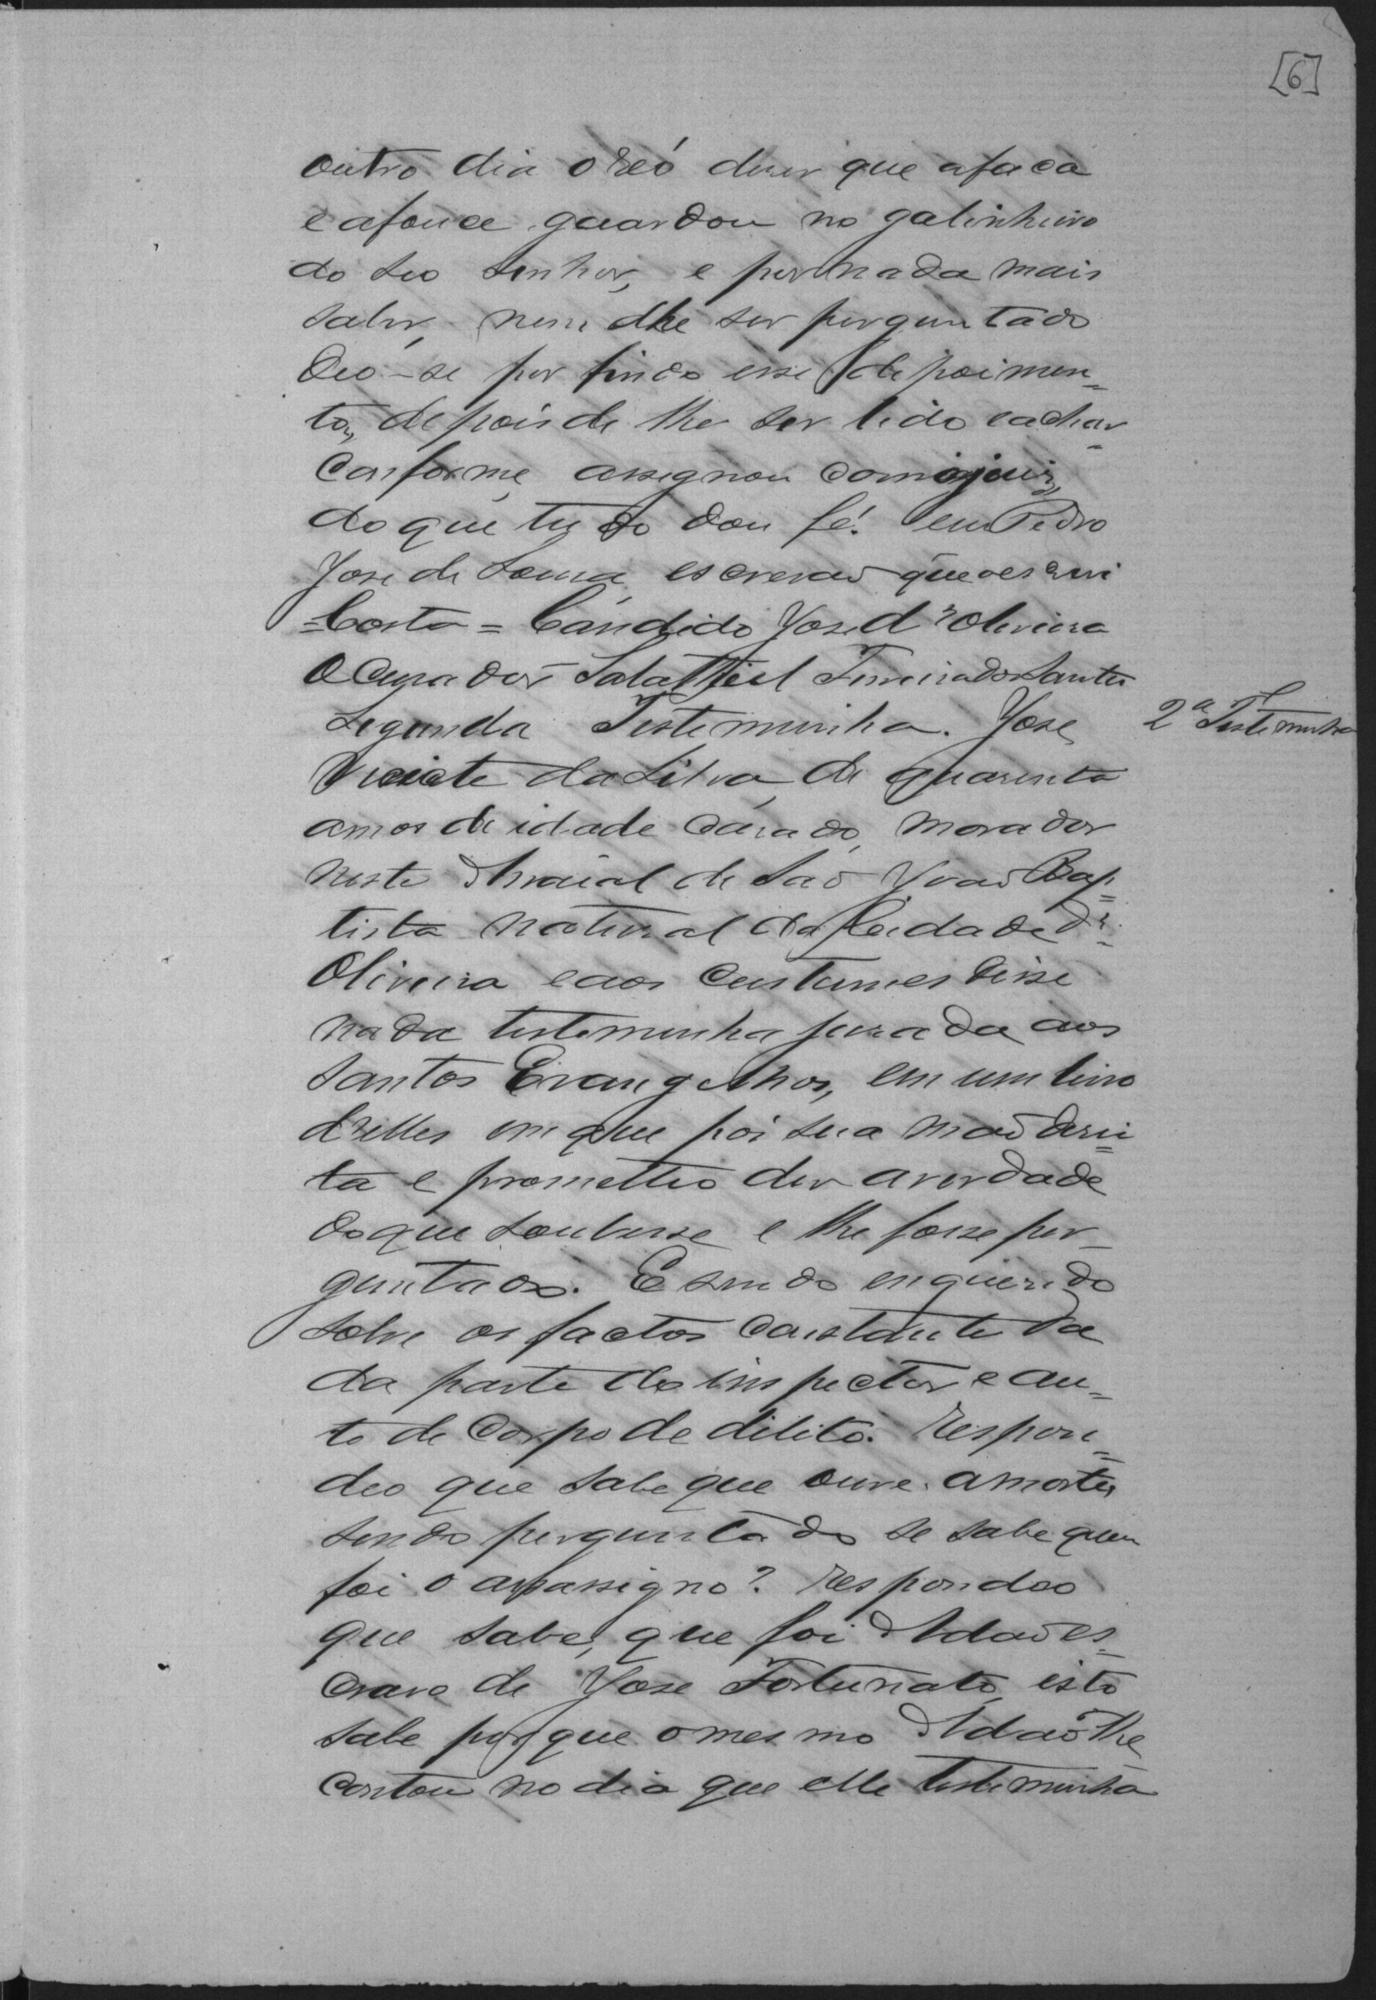 [6]
outro dia o Reó diser que afaca
e afouce guardou no galinheiro
do seo senhor, e por nada mais
saber, nem lhe ser perguntado
deo-se por findo esse depoimen=
to, depois de lhe ser lido e achar=
conforme, assignou com o juiz,
do que tudo dou fé. eu Pedro
Jose de Souza escrevaõ que escrevi
=Costa= Cándido José d'Oliveira
O Curador Salathiel Ferreira dos Santos
Segunda Testeminha. Jose
2ª Testeminha
Vicete da Silva, de quarenta
annos de idade cazado, morador
neste Arraial de Saõ Joaõ Bap=
tista natural da Cidade d'=
Oliveira e aos custumes disse
nada testeminha jurada aos
Santos Evangelhos, em um livro
d'elles em que poi sua maõ direi=
ta e prometteo dizer a verdade
do que soubesse e lhe fosse per=
guntado. E sendo enquerido
sobre os factos constante da
da parte do inspector e au=
to de Corpo de delito. Respon=
deo que sabe que ouve a morte,
sendo perguntado se sabe quem
foi o assassigno? respondeo
que sabe, que foi Adaõ es=
cravo de Jose Fortunato, isto
sabe por que o mesmo Adaõ lhe
contou no dia que elle testeminha